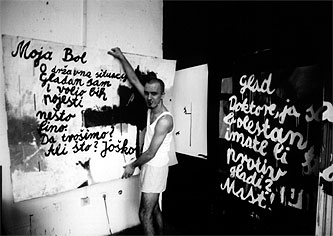 Moja Bol
O državna situacijo
gladan sam
I volio bih
pojesti
nešto
fino.
Da prosimo?
Ali što? Joško
Glad
Doktore, ja
bolestan
imate li
protiv
gladi?
Mast!